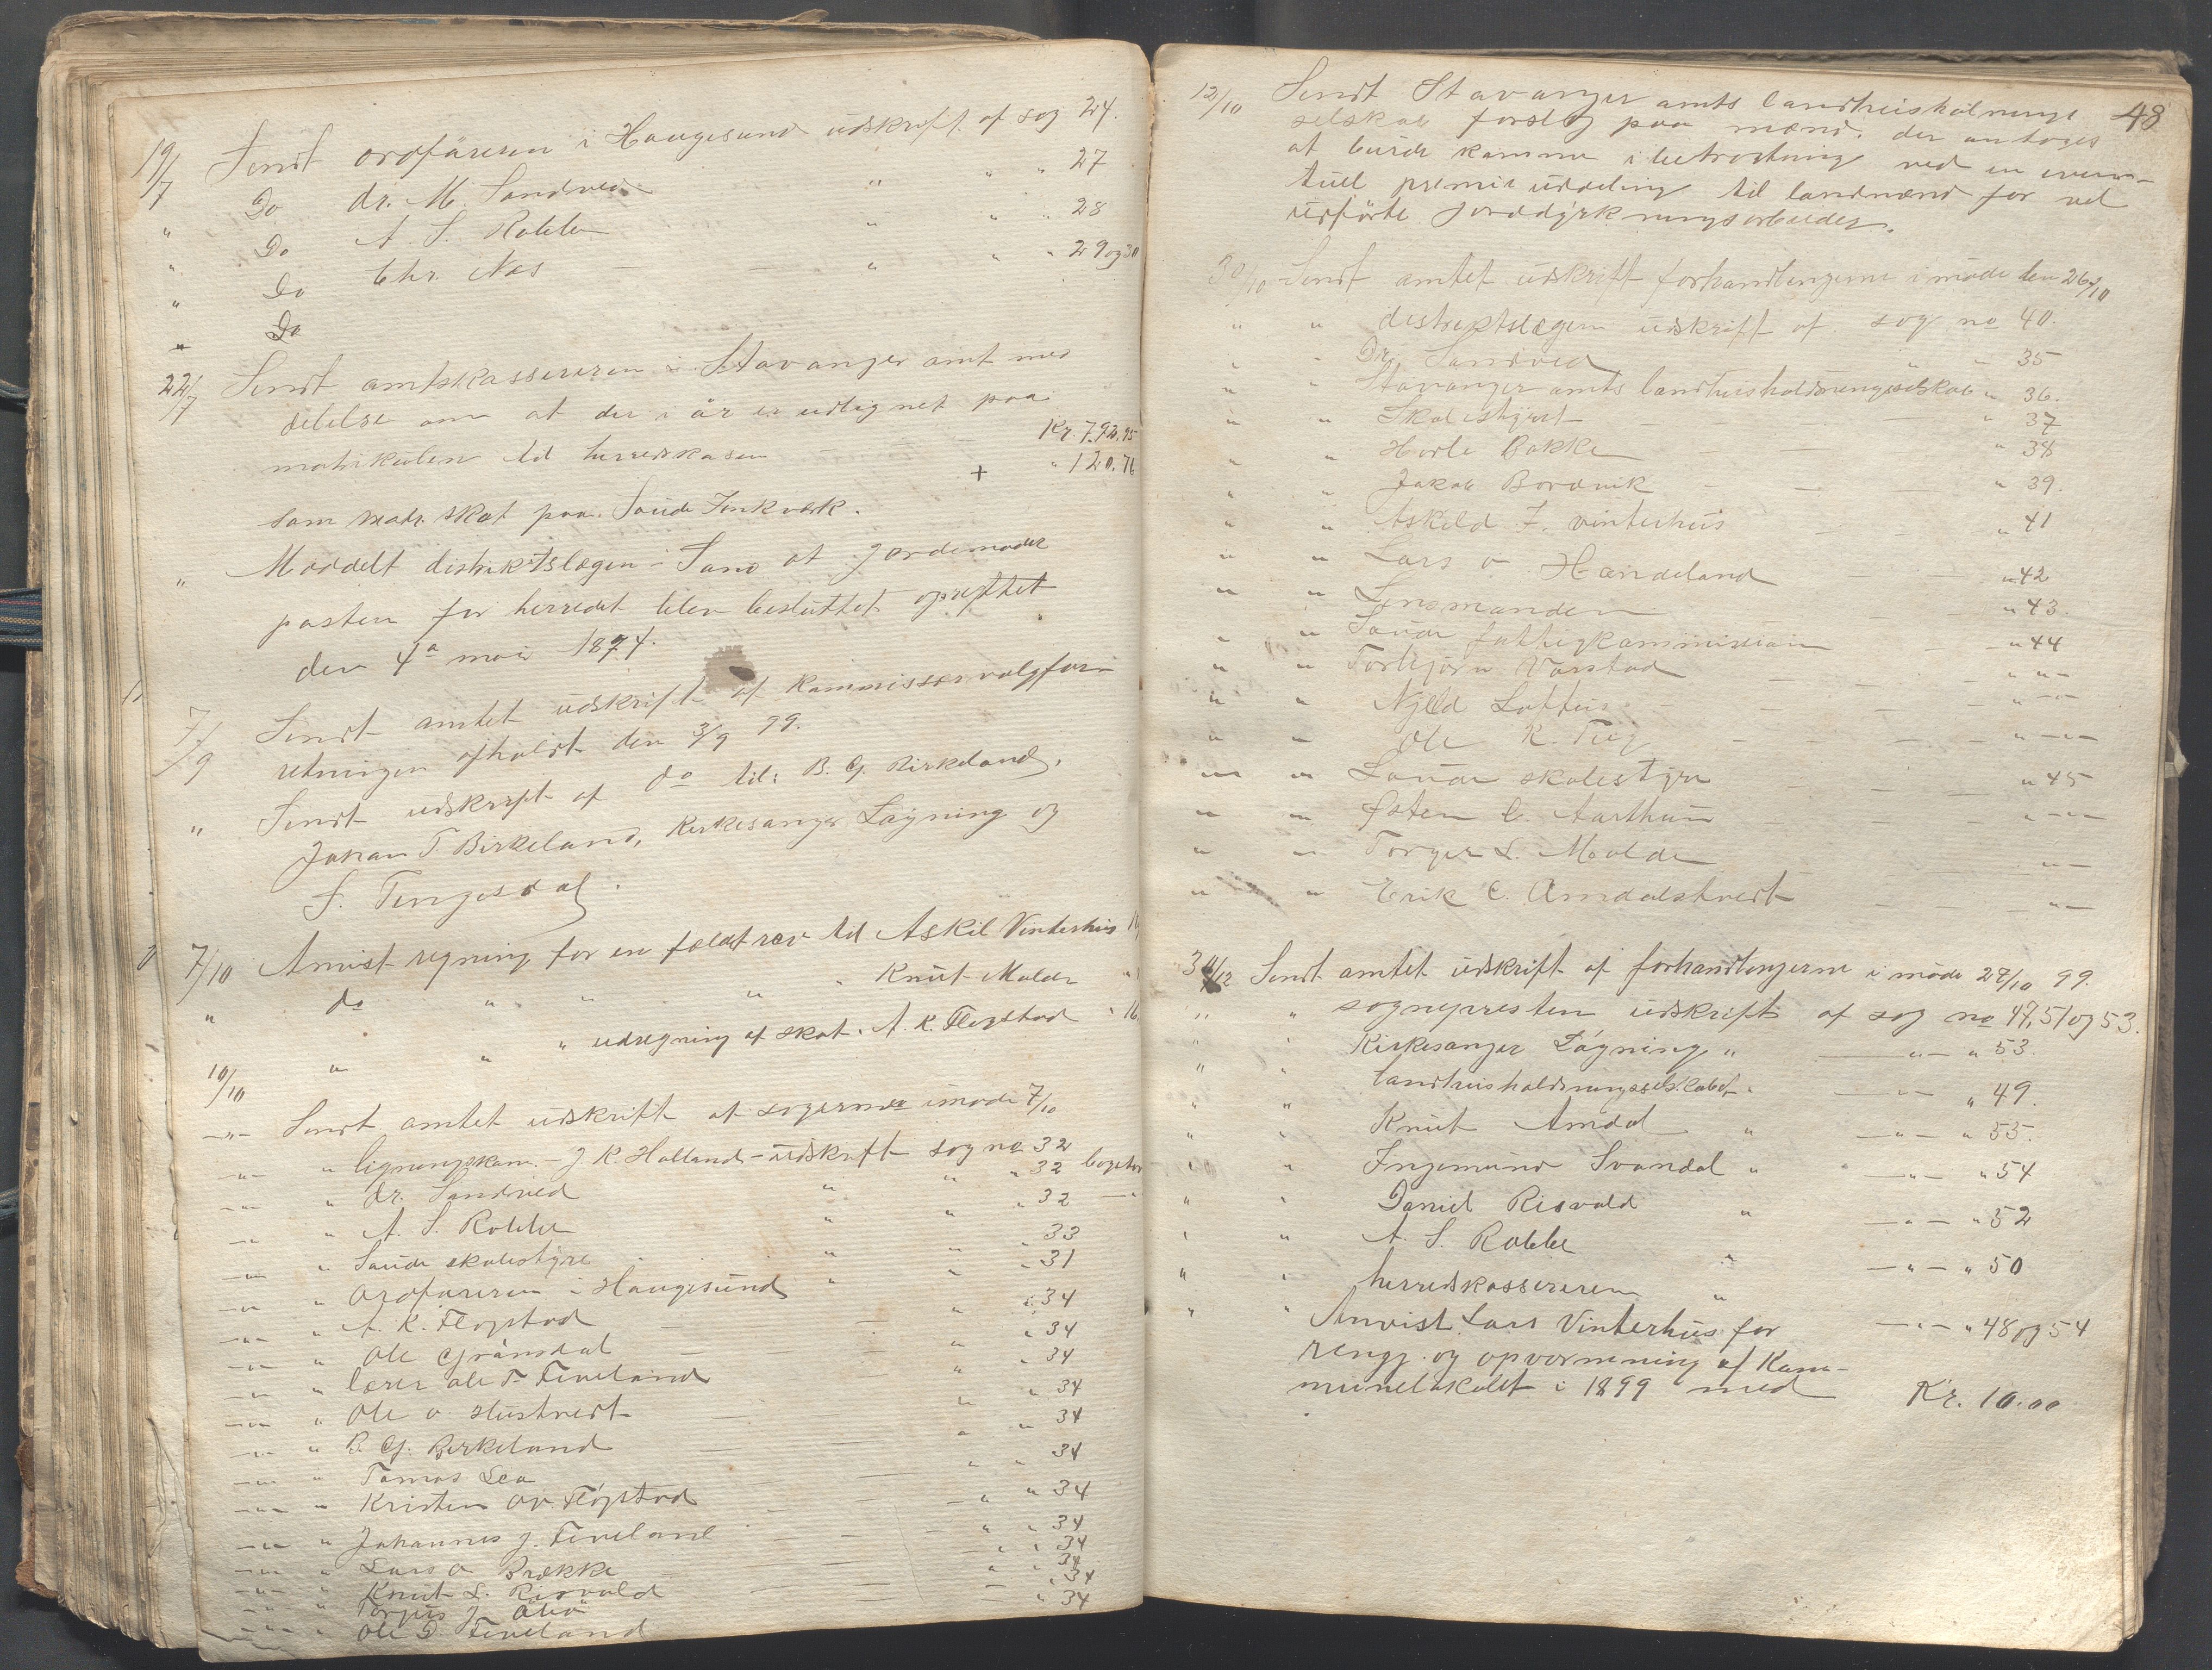 19/7 Sendt ordføreren i Haugesund udskrift af sag 24.
" Do dr. M. Sandved " " " 27
" Do A. S. Rabbe " " " 28
" Do Chr. Næs — — " " " 29 og 30
" Do
22/7 Sendt amtskassereren i Stavanger amt med
delelse om at der i år er udlignet paa
matrikulen til herredskassen Kr. 792.95
+ " 120.76
som matr. skat paa Saude Zinkværk.
" Meddelt distriktslægen i Sand at jordemoder
posten for herredet blev besluttet oprettet
den 4de mai 1874.
7/9 Sendt amtet udskrift af kommissærvalgfor-
retningen afholdt den 3/9 99.
" Sendt udskrift af do til: B. G. Birkeland,
Johan T. Birkeland, kirkesanger Løgning og
S. Tengesdal.
7/10 Anvist regning for en fældet ræv til Askil Vinterhus
" do " " " " Knut Molde
10/10 " " " udregning af skat. A. K. Fløgstad " 16
—"— Sendt amtet udskrift af sagerne i møde 7/10
—"— " ligningskom. — J K Halland — udskrift sag no 32
—"— " dr. Sandved " " " 32
—"— " A. S. Rabbe " " " 32 —"
—"— " Saude skolestyre " " " 33
—"— " Ordføreren i Haugesund " " " 31
—"— " A. K. Fløgstad — — " " 34
—"— " Ole Grånsdal — — " " 34
—"— " lærer Ole T. Fiveland " " 34
—"— " Ole O. Hustveit — — " " 34
—"— " B. G. Birkeland — — " " 34
—"— " Tomas Lea " " 34
—"— " Kristen Ov. Fløgstad — — " " 34
—"— " Johannes J. Fiveland — — " " 34
—"— " Lars O Brække — — " " 34
—"— " Knut L. Risvold — — " " 34
—"— " Torgius J " 34
—"— " Ole D. Fiveland " 34
48
12/10 Sendt Stavanger amts landhusholdnings
selskab forslag paa mænd, der antoges
at burde komme i betragtning ved en even-
tuel premieuddeling til landmænd for vel
udførte jorddyrkningsarbeider.
30/10 Sendt amtet udskrift forhandlingerne i møde den 26/10
" " distriktslægen udskrift af sag no 40.
" " Dr. Sandved " — 35
" " Stavanger amts landhusholdningselskab " 36.
" " Skolestyret — — — " 37
" " Horle Bakke — — " 38
" " Jakob Bordvik — — — " 39.
" " Askild F. Vinterhus — — " 41
" " Lars O Handeland — " 42
" " Lensmanden — — " 43.
" " Saude fattigkommission — " 44
" " Torbjørn Varstad — — — " " —
" " Njeld Løfthus — — — " — " —
" " Ole K. Teig — — — " — " —
" " Saude skolestyre — — — " 45
" " Østen C. Aarthun — — — " — " —
" " Torger L. Molde — — — " —
" " Erik C. Amdalstveit — — — " —
30/12 Sendt amtet udskrift af forhandlingerne i møde 27/10 99.
" " sognepresten udskrift af sag no 47, 51 og 53.
" " Kirkesanger Løgning " —"— " 53.
" " landhusholdningsselskabet " —"— " 49.
" " Knut Amdal " —"— " 55.
" " Ingemund Svandal " —"— " 54
" " Daniel Risvold " —"— " 52
" " A. S. Rabbe " —"— " 50
" " herredskassereren " —"— " 48 og 54
" " Anvist Lars Vinterhus for
rengj. og opvarmning af Kom-
munelokalet i 1899 med Kr. 10.00